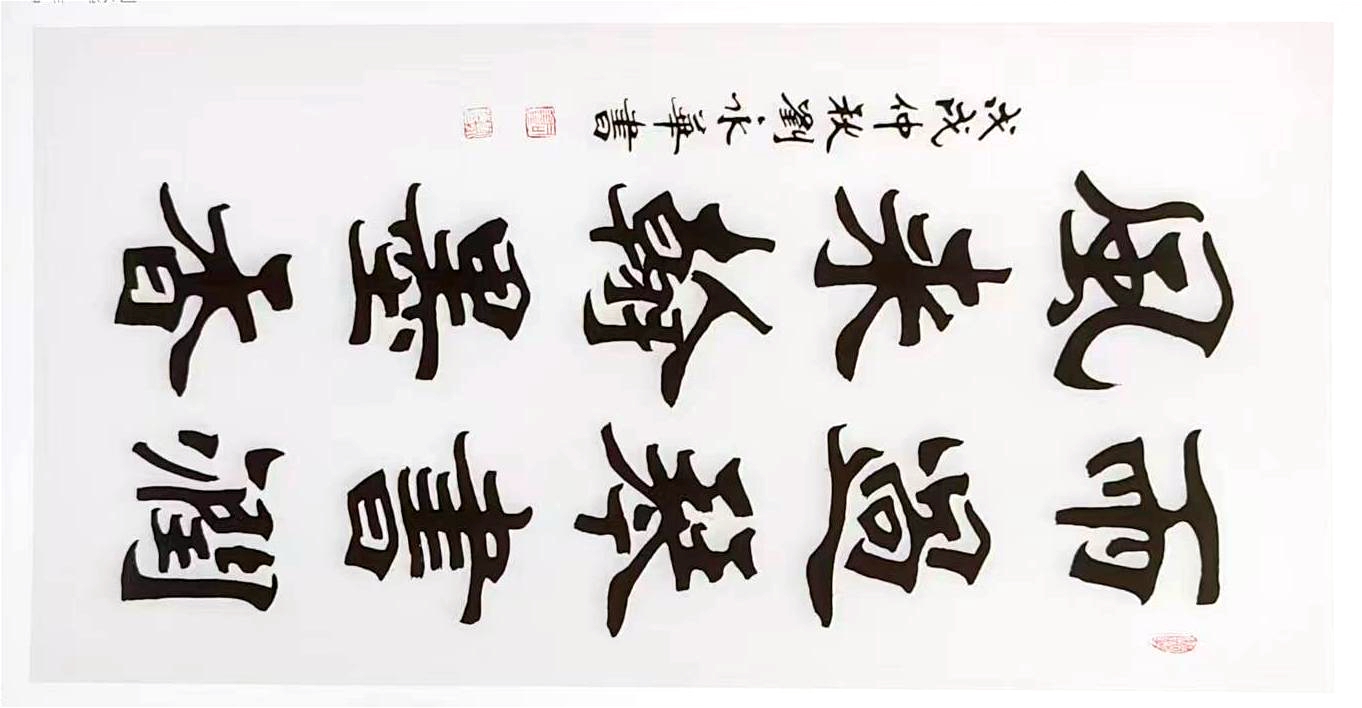 雨過琴書潤
風来翰墨香
戊戌仲秋劉永華書